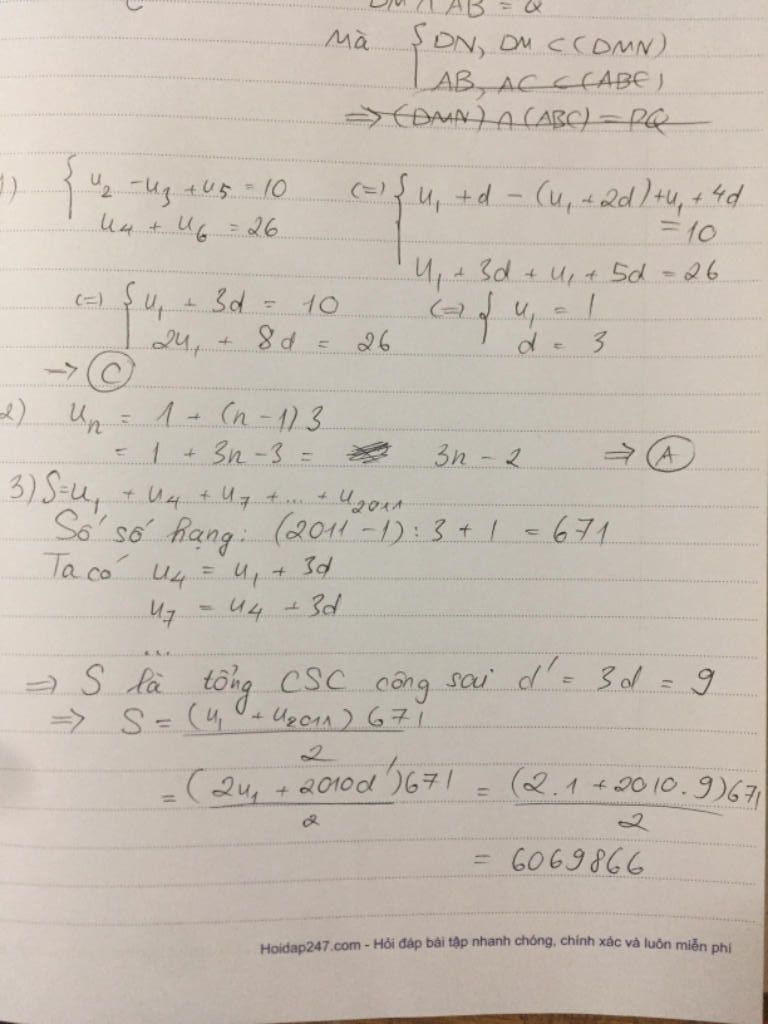 DM ∩ AB = Q
Mà { DN, DM ⊂ (DMN)
AB, AC ⊂ (ABC)
=> (DMN) ∩ (ABC) = PQ
1) { u₂ - u₃ + u₅ = 10 (=) { u₁ + d - (u₁ + 2d) + u₁ + 4d = 10
u₄ + u₆ = 26
u₁ + 3d + u₁ + 5d = 26
(=) { u₁ + 3d = 10 (=) { u₁ = 1
2u₁ + 8d = 26 d = 3
-> C
2) uₙ = 1 + (n - 1) 3
= 1 + 3n - 3 = 3n - 2 => A
3) S = u₁ + u₄ + u₇ + ... + u₂₀₁₁
Số số hạng: (2011 - 1) : 3 + 1 = 671
Ta có u₄ = u₁ + 3d
u₇ = u₄ + 3d
...
=> S là tổng CSC công sai d' = 3d = 9
=> S = (u₁ + u₂₀₁₁) 671 / 2
= (2u₁ + 2010d') 671 / 2 = (2.1 + 2010.9) 671 / 2
= 6069866
Hoidap247.com - Hỏi đáp bài tập nhanh chóng, chính xác và luôn miễn phí